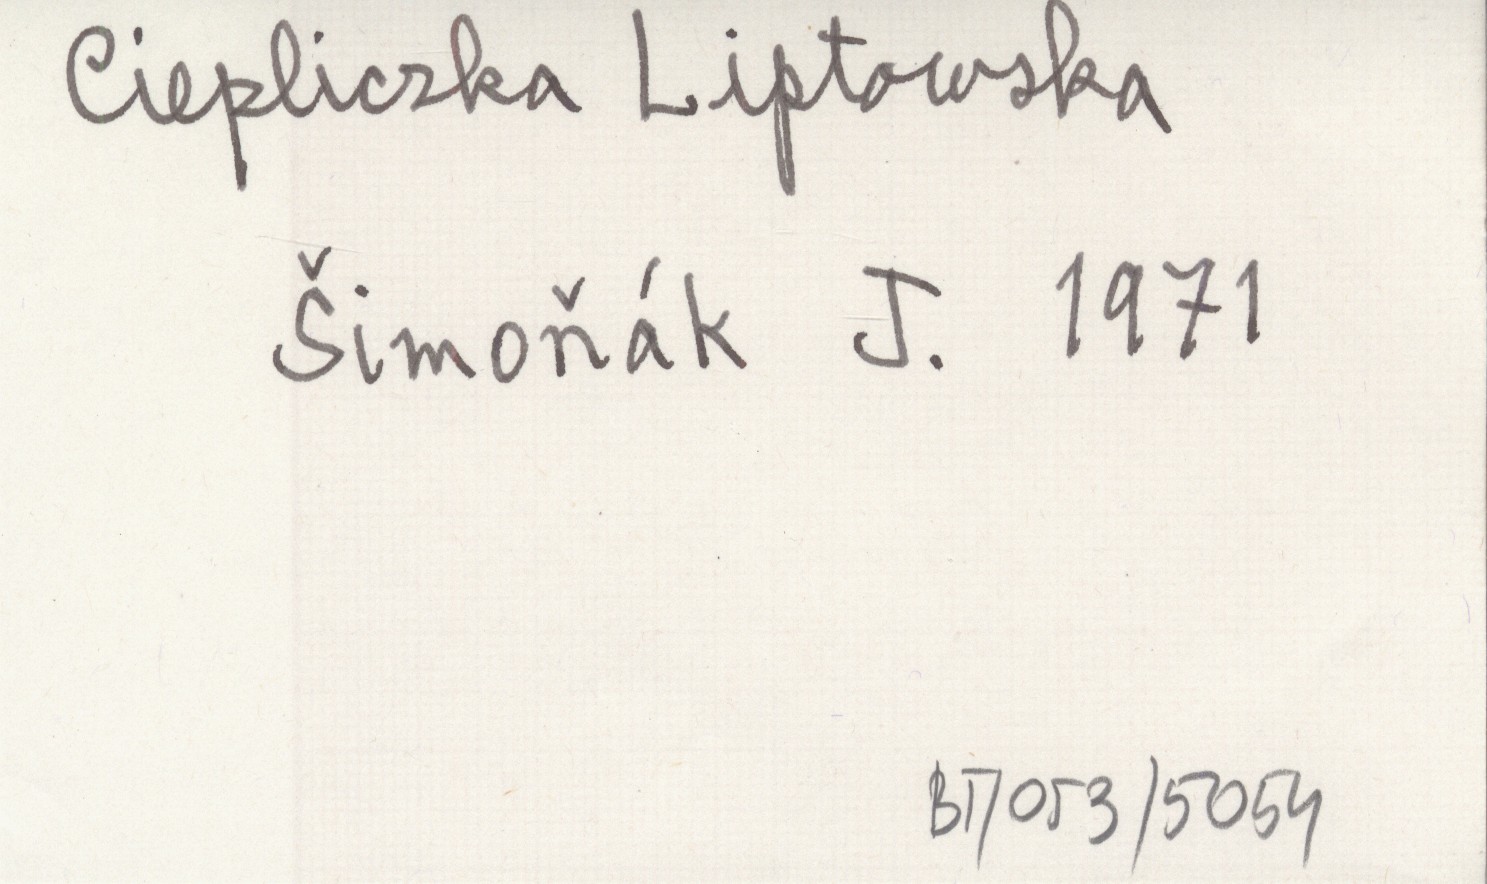 Ciepliczka Liptowska
Šimoňák J. 1971
BT/053/5054